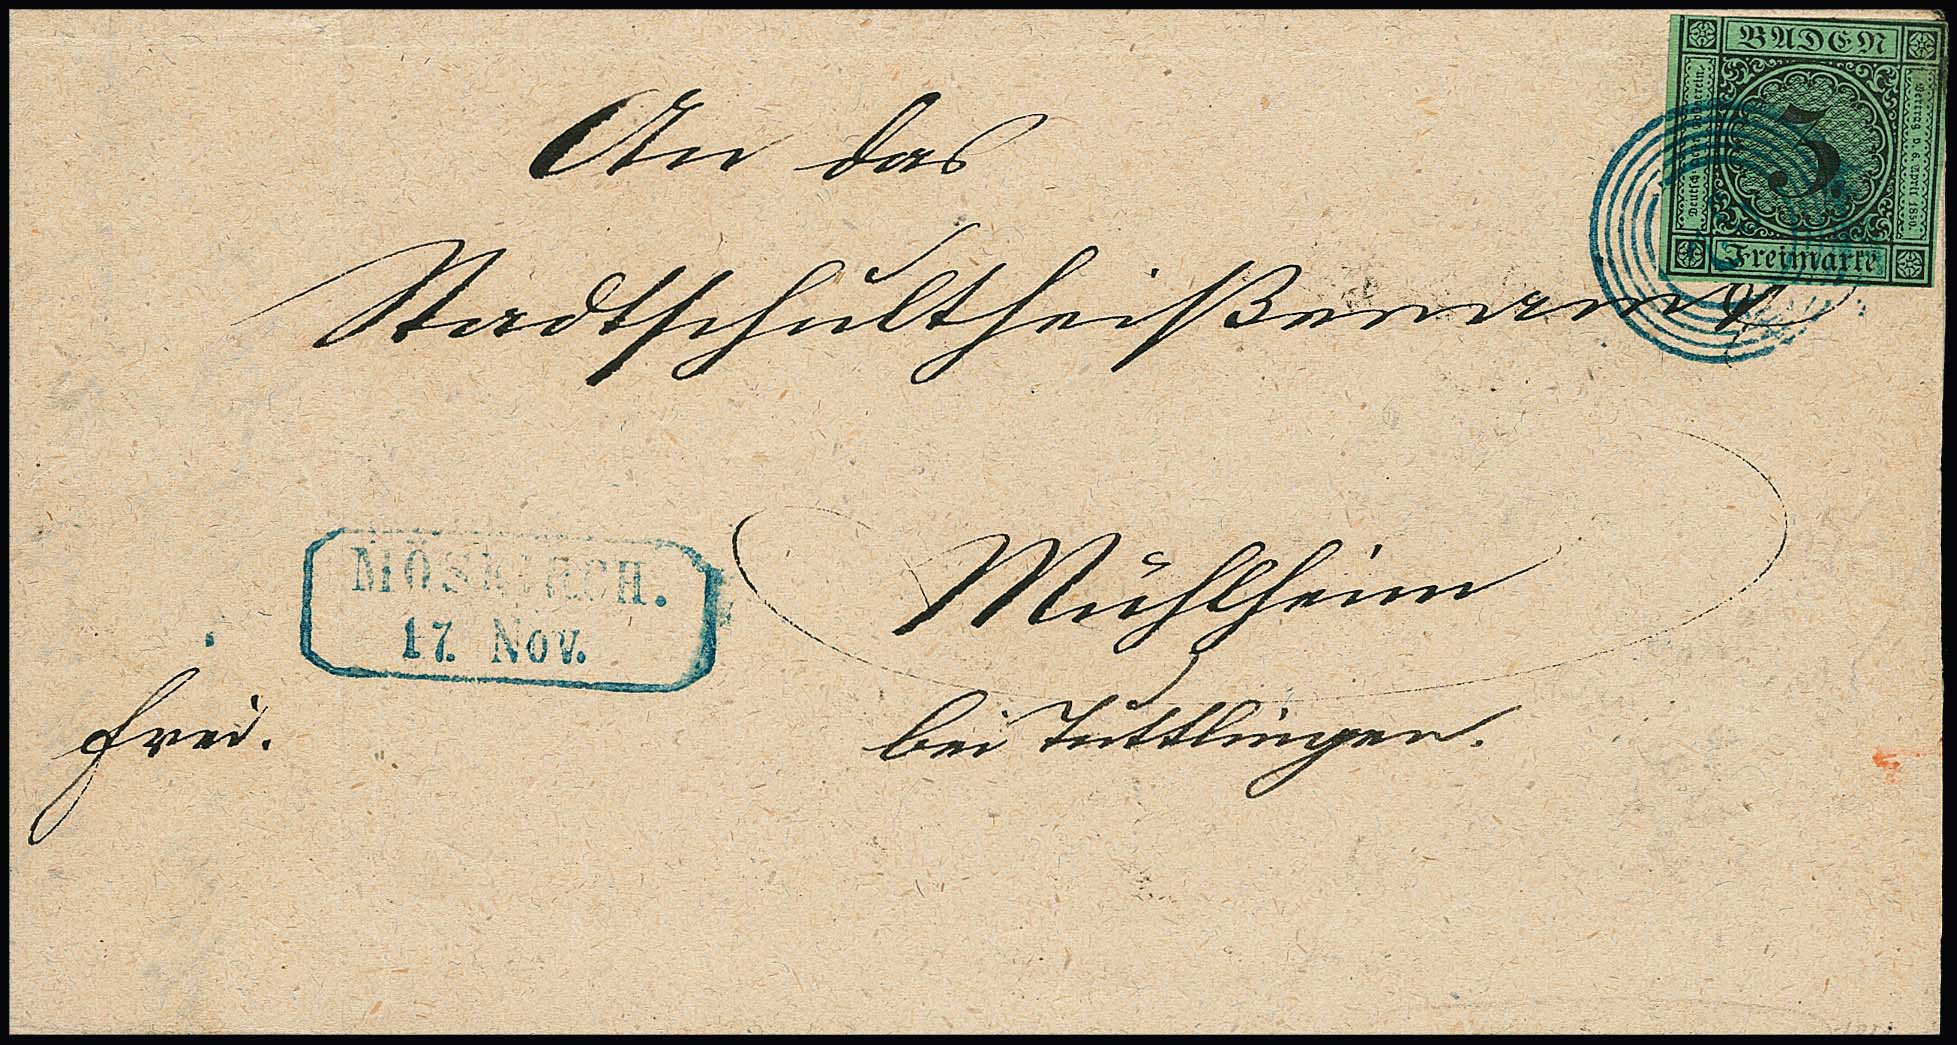 BADEN
Deutsch Östr. Postverein.
Vertrag v. 6. April 1850.
3
Freimarke
An das
Stadtschultheißenamt
MÖSKIRCH.
17. Nov.
Mühlheim
frei.
bei Tuttlingen.